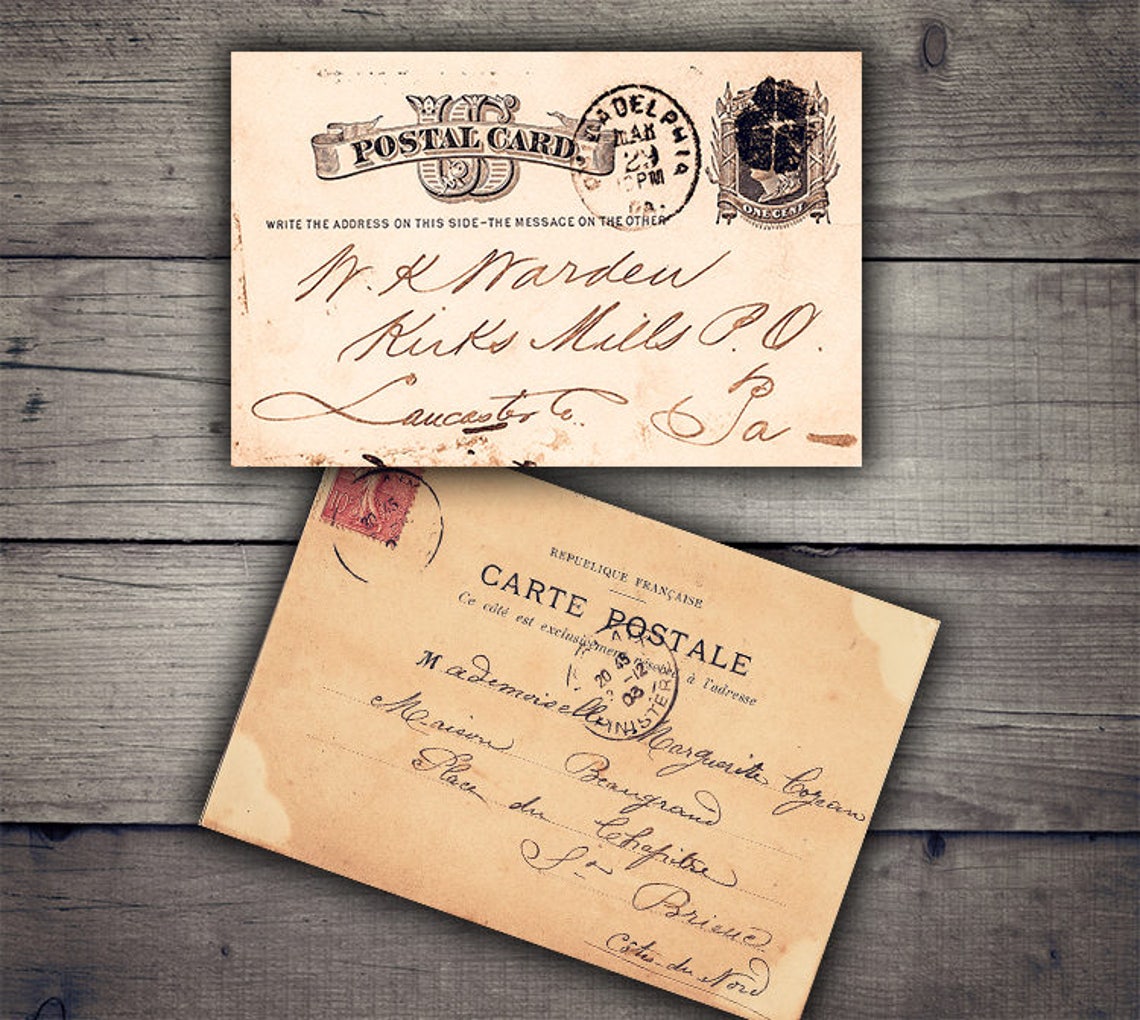 US
POSTAL CARD
PHILADELPHIA
MAR
29
PM
Pa.
ONE CENT
WRITE THE ADDRESS ON THIS SIDE–THE MESSAGE ON THE OTHER
W. K Warden
Kirks Mills P. O.
Lancaster Co.
Pa
10
REPUBLIQUE FRANÇAISE
CARTE POSTALE
Ce côté est exclusivement réservé à l'adresse
20 45
-12-
03
FINISTERE
Mademoiselle Marguerite Cozean
Maison Beaugrand
Place du Chapitre
St Brieuc
Côtes-du Nord